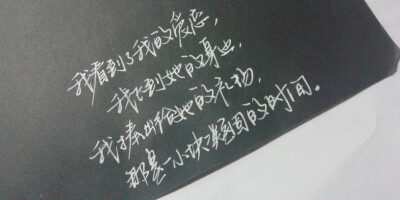 我看到了我的爱恋,
我飞到她的身边,
我捧出给她的礼物,
那是一小块凝固的时间。